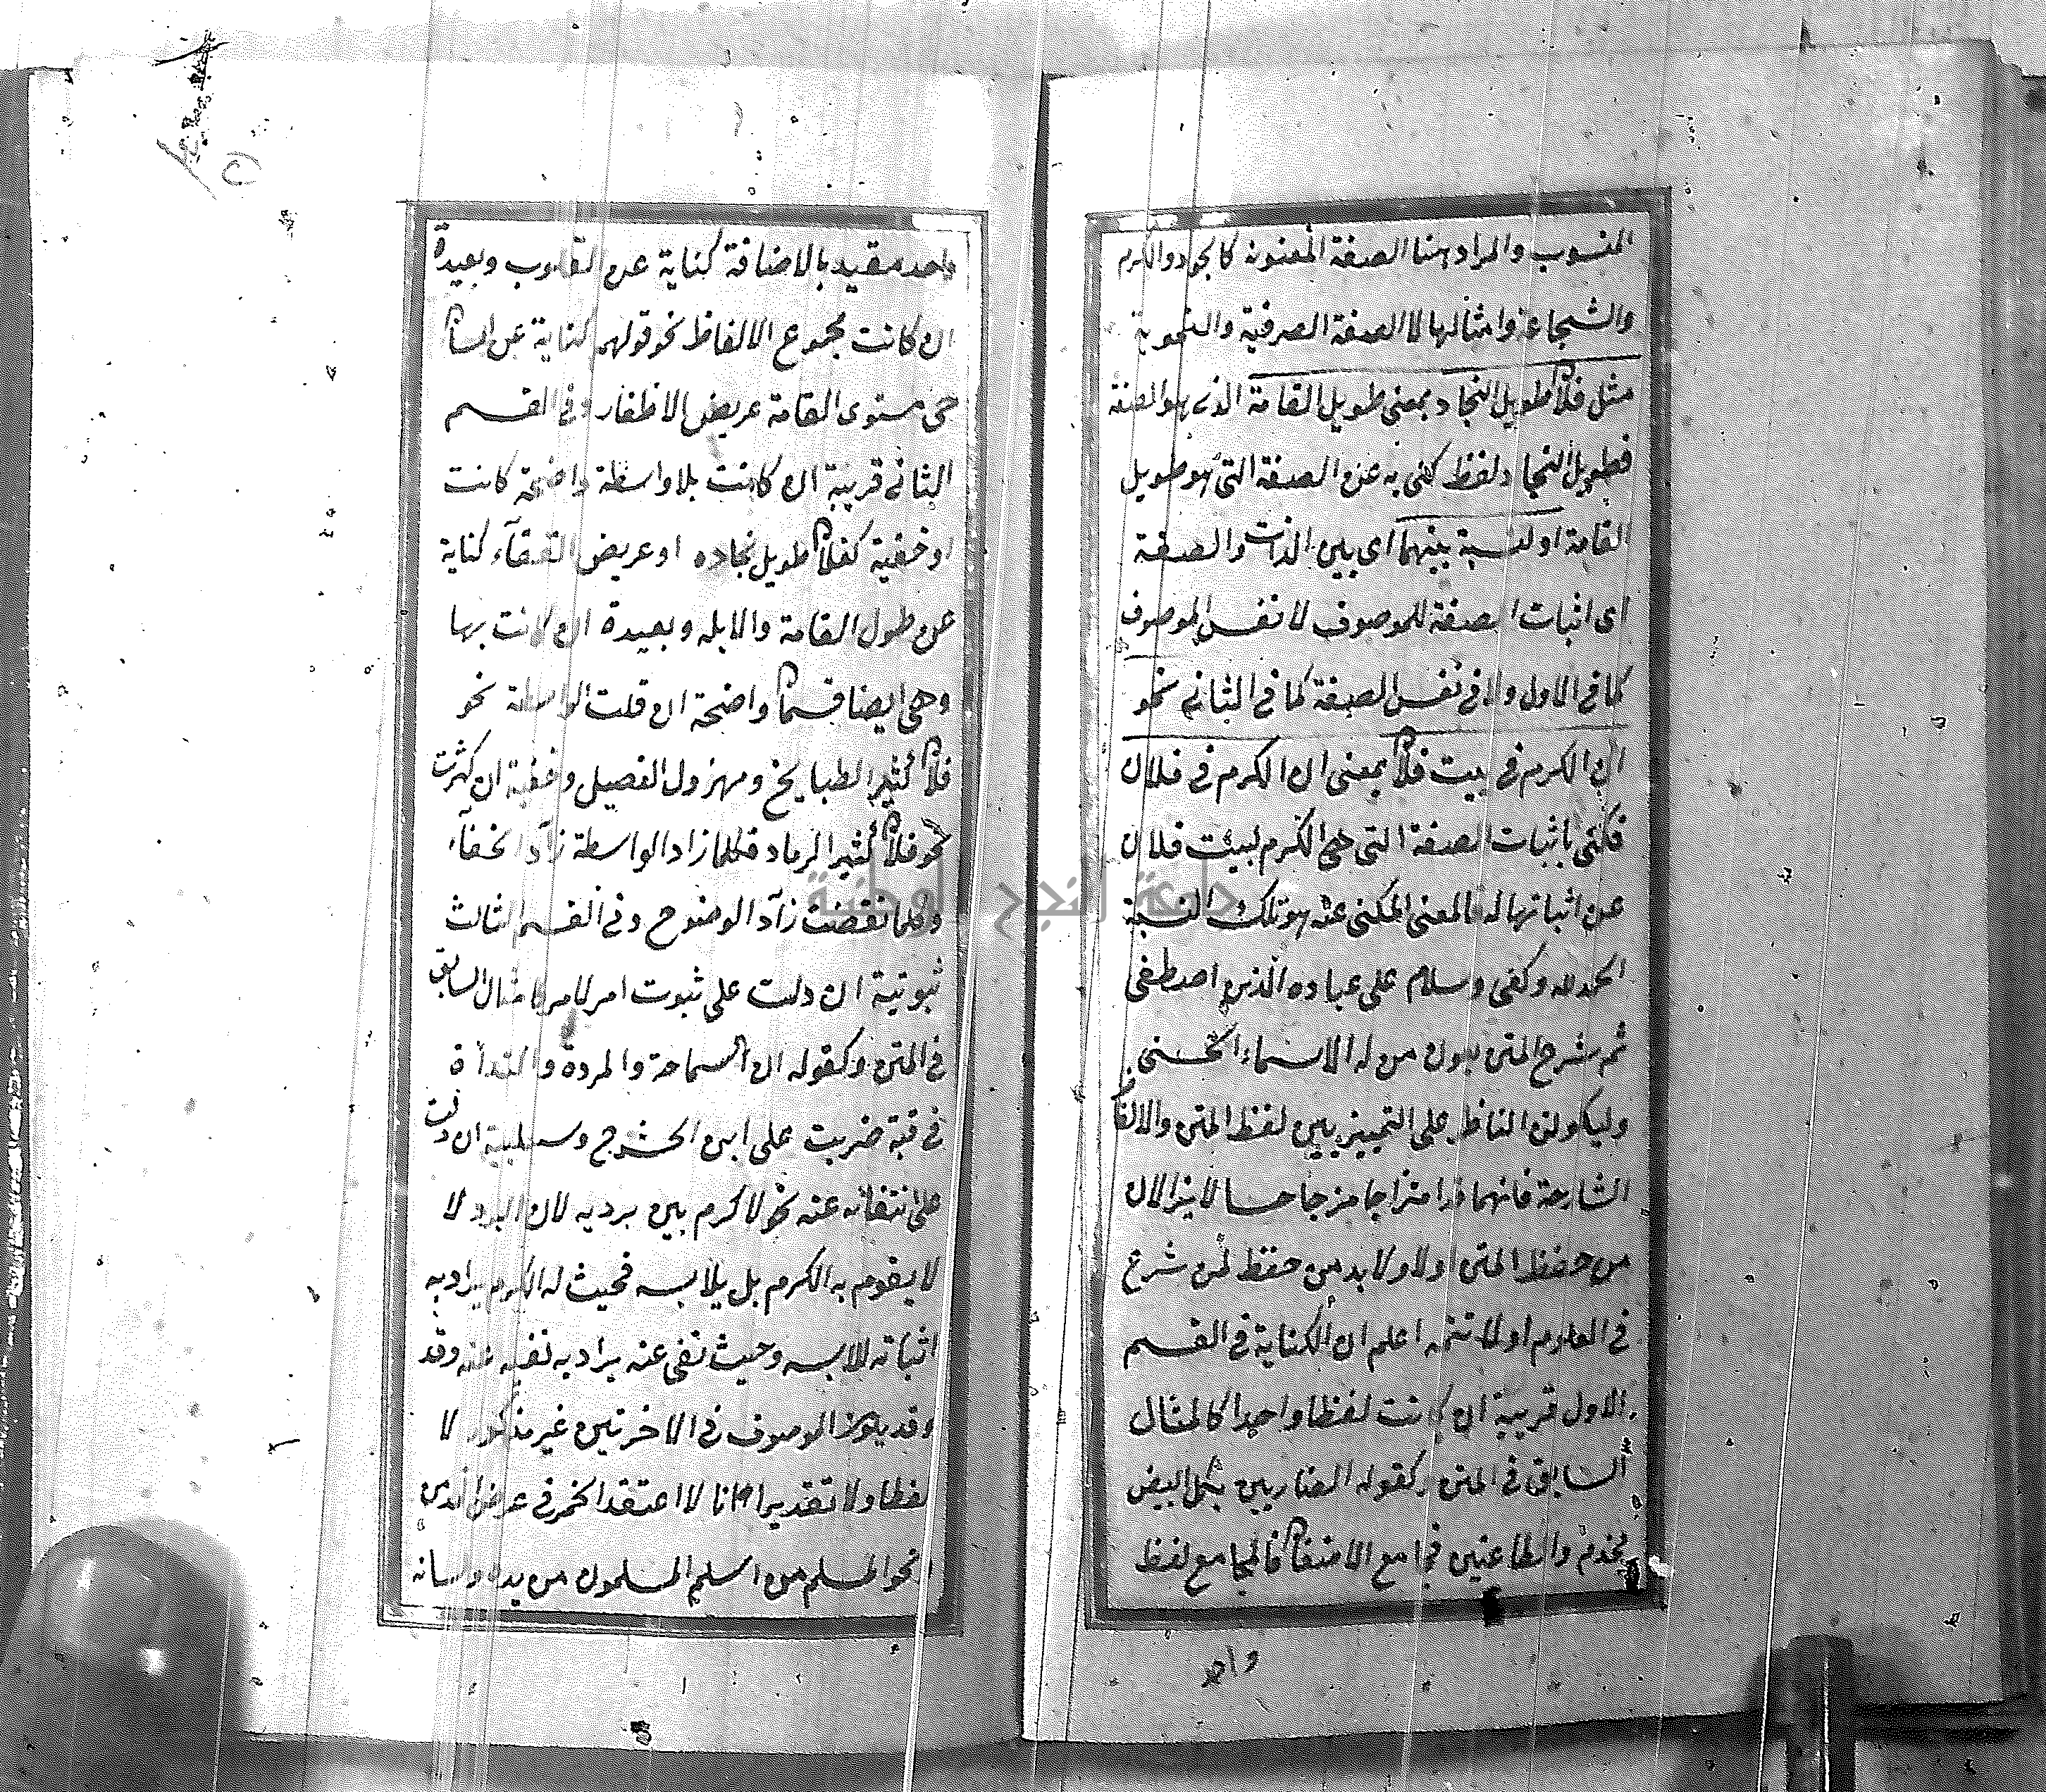 المنسوب والمراد هنا الصفة المعنوية كالجود والكرم
والشجاعة وامثالها لا الصفة الصرفية والنحوية
مثل فلان طويل النجاد بمعنى طويل القامة الذى هو الصفة
فطويل النجاد لفظ كنى به عن الصفة التى هو طويل
القامة او لنسبة بينهما اى بين الذات والصفة
اى اثبات الصفة للموصوف لا نفس الموصوف
كما فى الاول ولا فى نفس الصفة كما فى الثانى نحو
ان الكرم فى بيت فلان بمعنى ان الكرم فى فلان
فكنى باثبات الصفة التى هى الكرم لبيت فلان
عن اثباتها له فالمعنى المكنى عنه هو تلك النسبة
الحمد لله وكفى وسلام على عباده الذين اصطفى
تم شرح المتن بعون من له الاسماء الحسنى
وليكون الناظر على التمييز بين لفظ المتن والالفاظ
الشارحة فانهما قد امتزاجا مزجا حسا لا يزالان
من حفظ المتن اولا ولا بد من حفظ لمن شرع
فى العلوم اولا تتمه اعلم ان الكناية فى القسم
الاول قريبة ان كانت لفظا واحدا كالمثال
السابق فى المتن وكقوله الضاربين بكل ابيض
مخذم والطاعنين مجامع الاضغان فالمجامع لفظ
واحد
واحد مقيد بالاضافة كناية عن القلوب وبعيدة
ان كانت مجموع الالفاظ نحو قولهم كناية عن انسان
حى مستوى القامة عريض الاظفار وفى القسم
الثانى قريبة ان كانت بلا واسطة واضحة كانت
او خفية كفلان طويل نجاده او عريض القفاء كناية
عن طول القامة والابله وبعيدة ان كانت بها
وهى ايضا قسمان واضحة ان قلت الواسطة نحو
فلان كثير الطبايخ ومهزول الفصيل وخفية ان كثرت
نحو فلان كثير الرماد فكلما زاد الواسطة زاد الخفاء
وكلما نقضت زاد الوضوح وفى القسم الثالث
ثبوتية ان دلت على ثبوت امر لامر كامثال السابق
فى المتن وكقوله ان السماحة والمردة والنداة
فى قبة ضربت على ابن الحشرج وسلبية ان دلت
على نتفائه عنه نحو لا كرم بين برديه لان البرد لا
لا يقوم به الكرم بل يلابسه فحيث له الكرم يراد به
اثباته للابسه وحيث نفى عنه يراد به نفيه عنه وقد
وقد يكون الموصوف فى الاخرتين غير مذكور لا
لفظا ولا تقديرا لا اعتقد الخمر فى عرض الذى
نحو المسلم من اسلم المسلمون من يده ولسانه
جامعة النجاح الوطنية